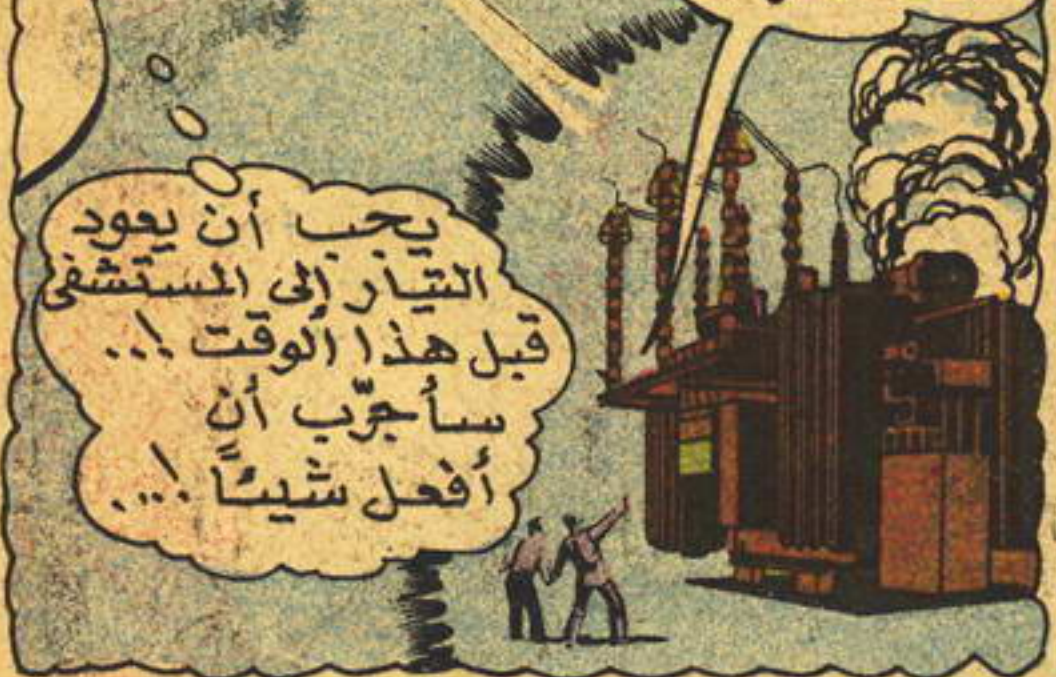 يجب أن يعود
التيار إلى المستشفى
قبل هذا الوقت !...
سأجرّب أن
أفعل شيئاً !...